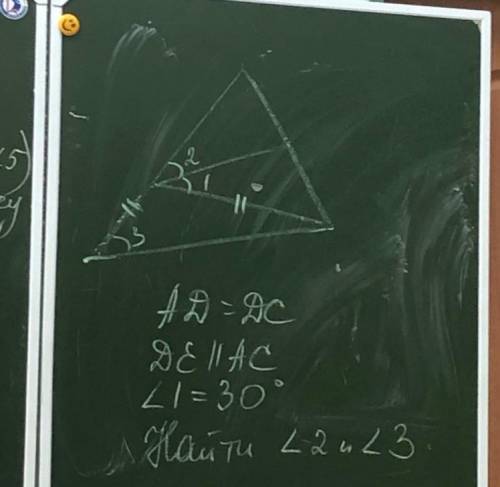 5)
2
1
3
AD = DC
DE || AC
∠1 = 30°
Найти ∠2 и ∠3.